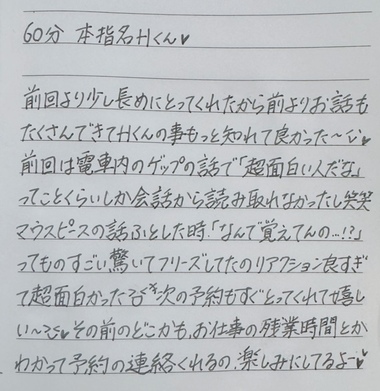 60分 本指名Hくん♥
前回より少し長めにとってくれたから前よりお話も
たくさんできてHくんの事もっと知れて良かった〜
前回は電車内のゲップの話で「超面白い人だな」
ってことくらいしか会話から読み取れなかったし笑笑
マウスピースの話ふとした時、「なんで覚えてんの…!?」
ってものすごい驚いてフリーズしてたのリアクション良すぎ
て超面白かった 次の予約もすぐとってくれて嬉し
い〜♥その前のどこかも、お仕事の残業時間とか
わかって予約の連絡くれるの、楽しみにしてるよー♥